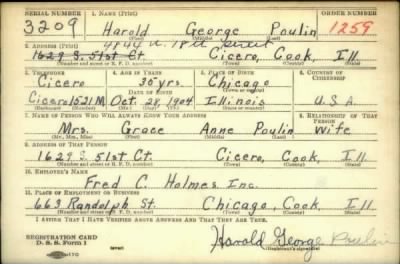 SERIAL NUMBER 1. NAME (Print) ORDER NUMBER
3209 Harold George Poulin 1259
(First) (Middle) (Last)
2. ADDRESS (Print)
1629 S. 51st Ct. Cicero, Cook, Ill
(Number and street or R. F. D. number) (Town) (County) (State)
3. TELEPHONE 4. AGE IN YEARS 5. PLACE OF BIRTH 6. COUNTRY OF CITIZENSHIP
Cicero 35 yrs. Chicago
DATE OF BIRTH (Town or county)
Cicero 1521 M Oct. 28, 1904 Illinois U.S.A.
(Exchange) (Number) (Mo.) (Day) (Yr.) (State or country)
7. NAME OF PERSON WHO WILL ALWAYS KNOW YOUR ADDRESS 8. RELATIONSHIP OF THAT PERSON
Mrs. Grace Anne Poulin Wife
(Mr., Mrs., Miss) (First) (Middle) (Last)
9. ADDRESS OF THAT PERSON
1629 S. 51st Ct. Cicero, Cook, Ill
(Number and street or R. F. D. number) (Town) (County) (State)
10. EMPLOYER'S NAME
Fred C. Holmes Inc.
11. PLACE OF EMPLOYMENT OR BUSINESS
663 Randolph St. Chicago, Cook, Ill
(Number and street or R. F. D. number) (Town) (County) (State)
I AFFIRM THAT I HAVE VERIFIED ABOVE ANSWERS AND THAT THEY ARE TRUE.
REGISTRATION CARD
D. S. S. Form 1 (over) Harold George Poulin
(Registrant's signature)